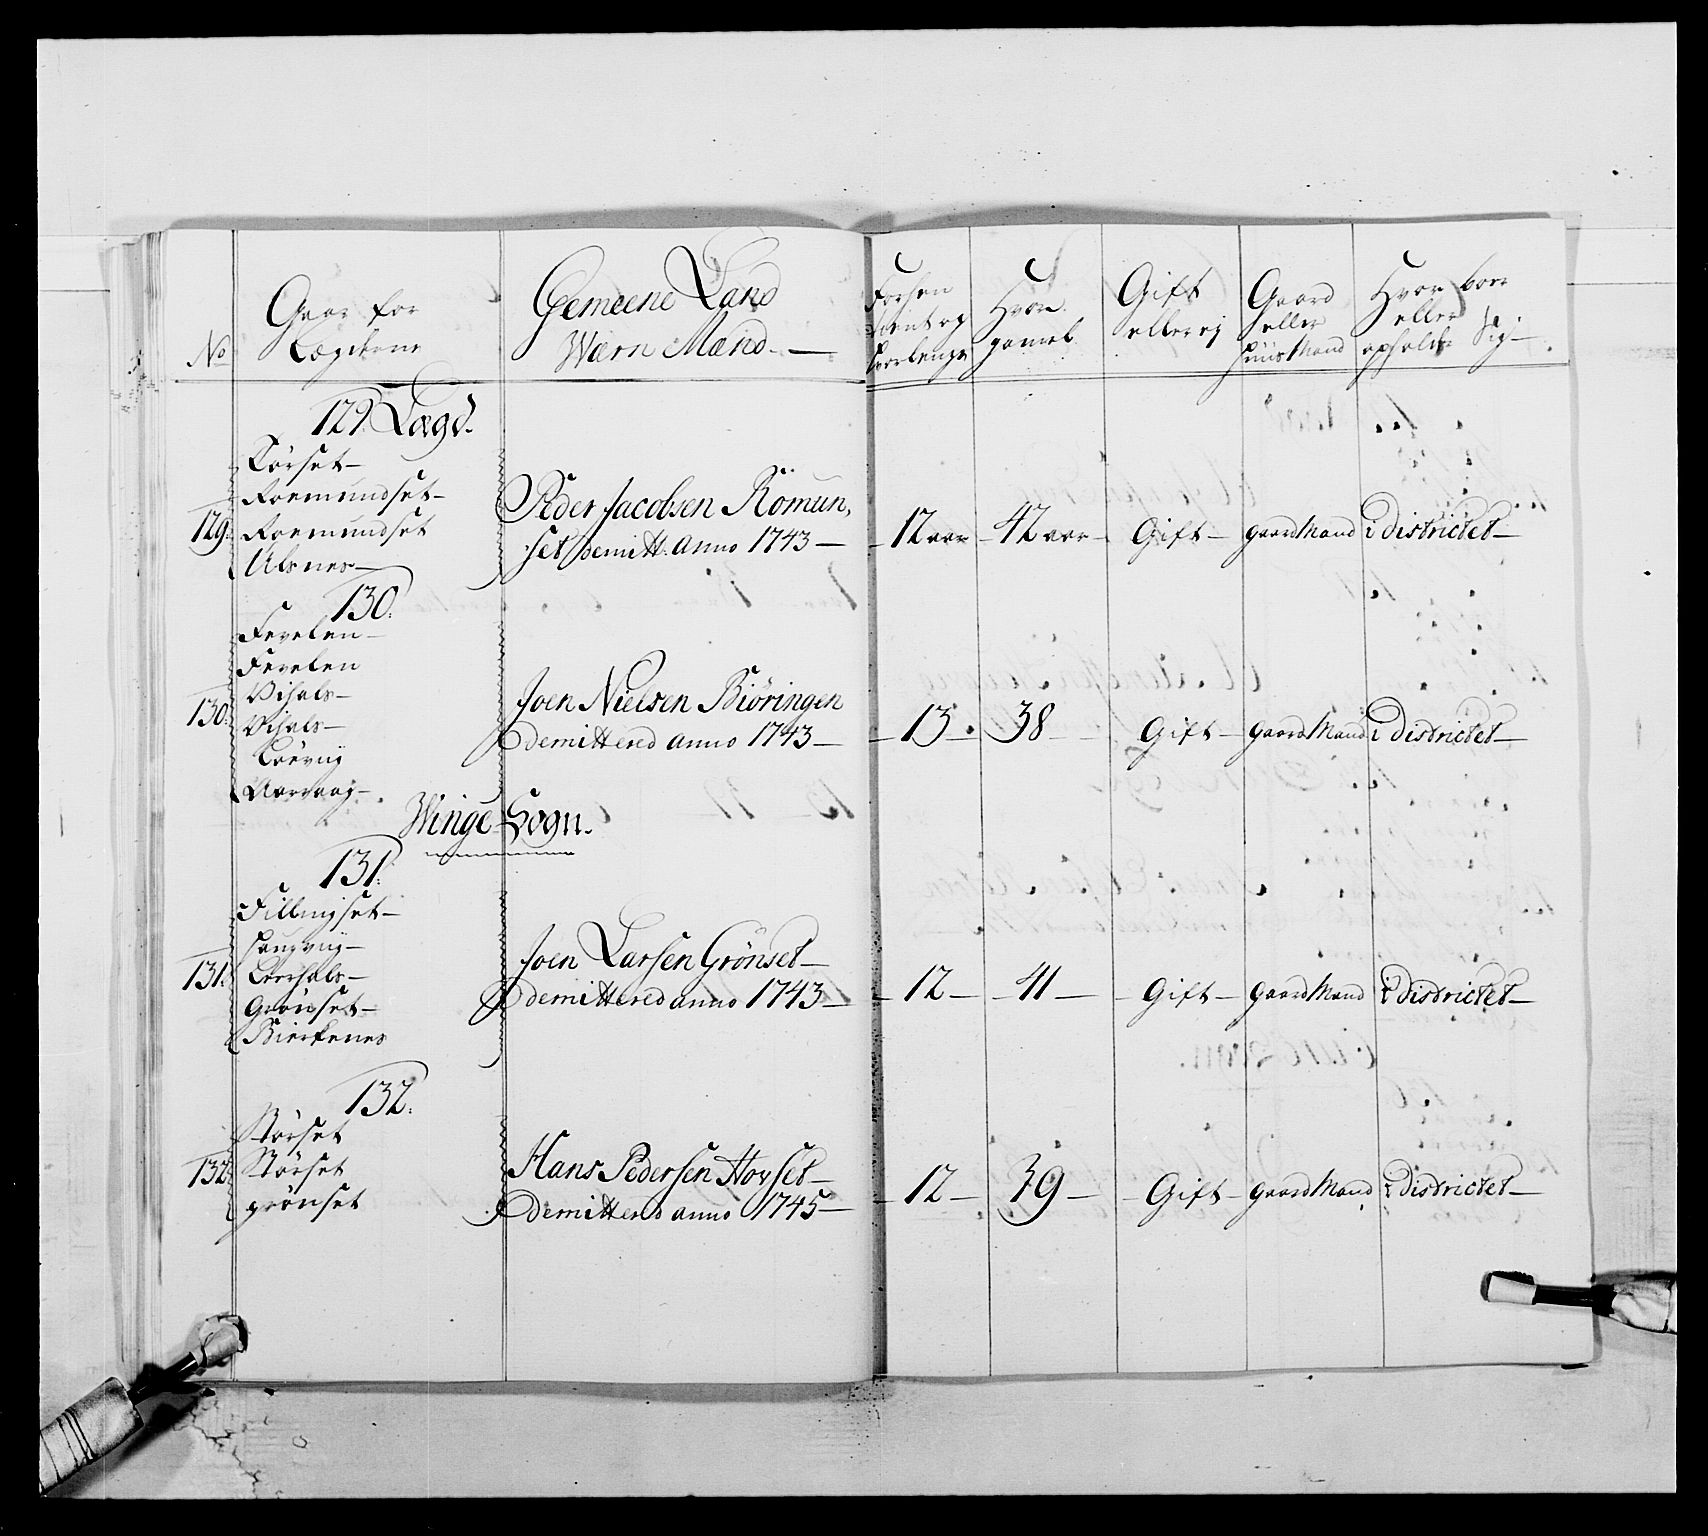 No
Gaar for
Lægderne
Gemeene Land
Wærn Mænd
tient og
Hvor
gamel
Gift
eller ej
Gaard
eller
Huus Mand
Hvor boer
eller
opholder Sig
129. Lægd.
Körset
Roemundset
129. Roemundset
Ulsnes
Peder Jacobsen Romun,
set demitt. anno 1743
12 aar 42 aar Gift gaard Mand i districtet
130.
Fevelen
Fevelen
Vihals
130. Vihals
Aarvaag
Joen Nielsen Biöringen
demittered anno 1743
13. 38 Gift gaard Mand i districtet
Winge Sogn.
131.
Fillingset
Laugviig
131. Leerhals
Grönset
Bierkenes
Joen Larsen Grönset
demittered anno 1743
12 41 Gift gaard Mand i districtet
132.
Störset
132. Störset
grönset
Hans Pedersen Hovset
demittered anno 1745
12 39 Gift gaard Mand i districtet